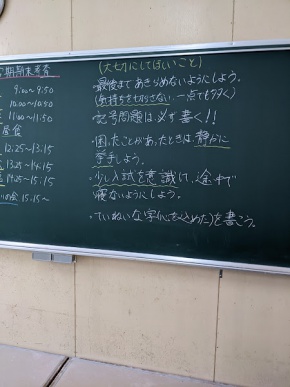 期期末考査
9:00〜9:50
10:00〜10:50
11:00〜11:50
昼食
12:25〜13:15
13:25〜14:15
14:25〜15:15
の会 15:15〜
(大切にしてほしいこと)
・最後まであきらめないようにしよう。
(気持ちを切らさない。一点でも多く)
・記号問題は必ず書く!!
・困ったことがあったときは、静かに
挙手しよう。
・少し入試を意識して、途中で
寝ないようにしよう。
・ていねいな字(心を込めた)を書こう。